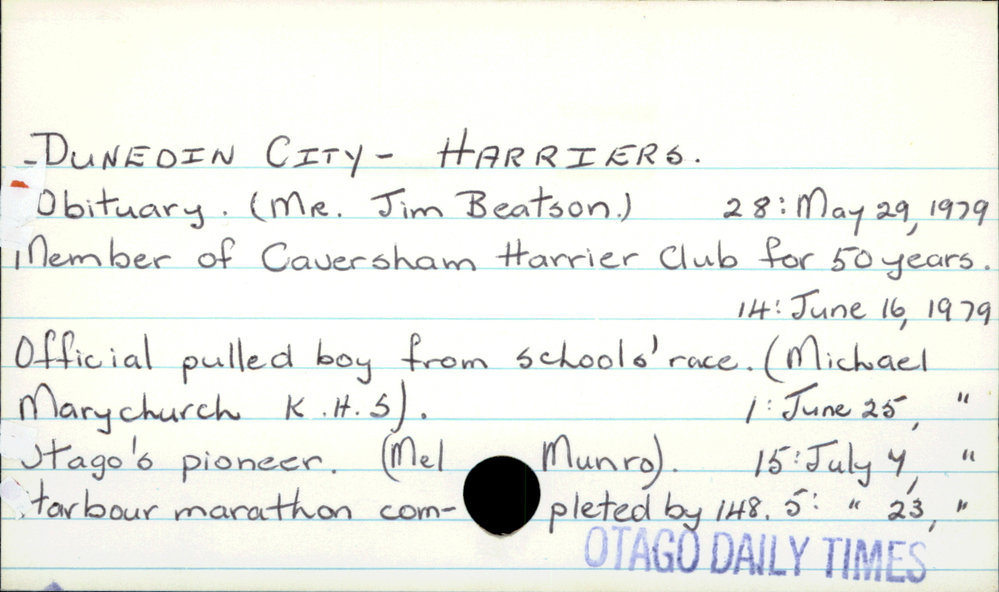 -DUNEDIN CITY- HARRIERS.
Obituary. (Mr. Jim Beatson.) 28: May 29, 1979
Member of Caversham Harrier Club for 50 years.
14: June 16, 1979
Official pulled boy from schools' race. (Michael
Marychurch K.H.S). 1: June 25, "
Otago's pioneer. (Mel Munro). 15: July 4, "
Harbour marathon com-pleted by 148. 5: " 23, "
OTAGO DAILY TIMES